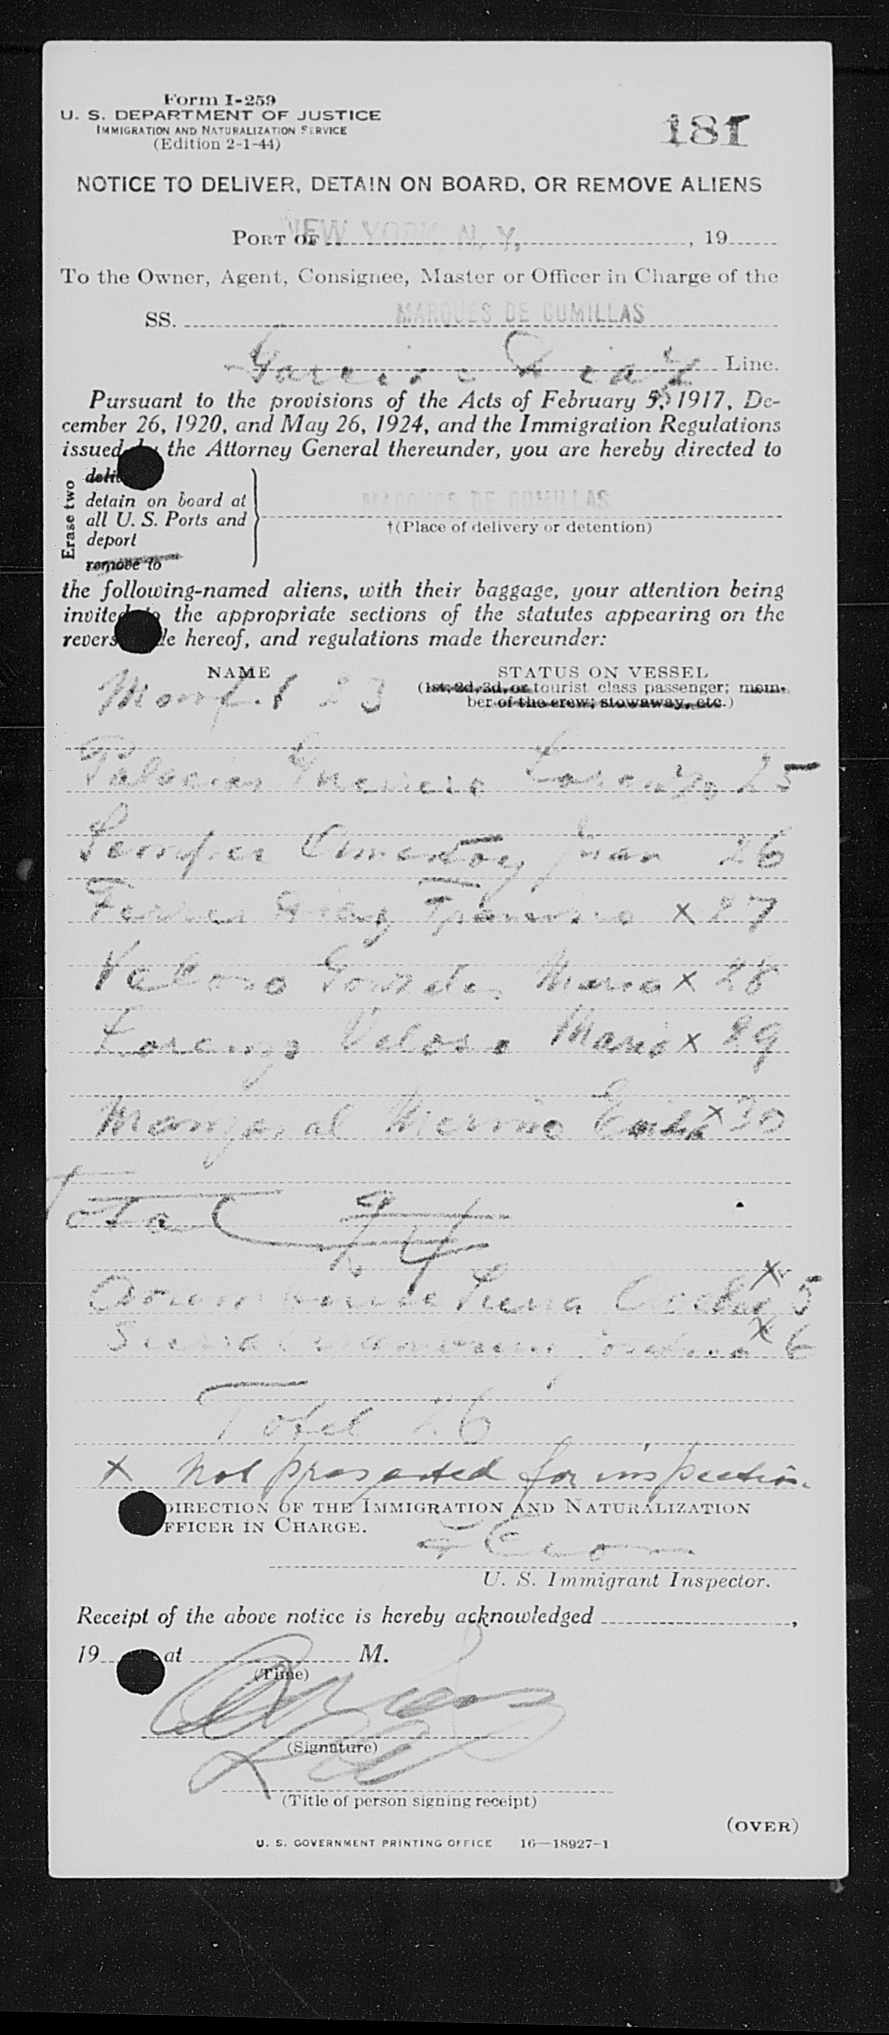 Form I-259
U. S. DEPARTMENT OF JUSTICE
IMMIGRATION AND NATURALIZATION SERVICE
(Edition 2-1-44)
181
NOTICE TO DELIVER, DETAIN ON BOARD, OR REMOVE ALIENS
PORT OF NEW YORK, N. Y. , 19
To the Owner, Agent, Consignee, Master or Officer in Charge of the
SS. MARQUES DE COMILLAS
Garcia & Diaz Line.
Pursuant to the provisions of the Acts of February 5, 1917, De-
cember 26, 1920, and May 26, 1924, and the Immigration Regulations
issued by the Attorney General thereunder, you are hereby directed to
Erase two
detain on board at
all U. S. Ports and
deport
remove to
MARQUES DE COMILLAS
†(Place of delivery or detention)
the following-named aliens, with their baggage, your attention being
invited to the appropriate sections of the statutes appearing on the
reverse side hereof, and regulations made thereunder:
NAME STATUS ON VESSEL
(1st, 2d, 3d, or tourist class passenger; mem-
ber of the crew; stowaway, etc.)
Manf. 1 23
Palacios Lorenzo 25
Semper Juan 26
Ferrer Diaz Francisco x 27
Veloso Maria x 28
Lorenzo Veloso Maria x 29
Merino x 30
Total 24
Serra x 5
x 6
Total 26
x Not presented for inspection.
DIRECTION OF THE IMMIGRATION AND NATURALIZATION
OFFICER IN CHARGE.
U. S. Immigrant Inspector.
Receipt of the above notice is hereby acknowledged ,
19 at M.
(Time)
(Signature)
(Title of person signing receipt)
(OVER)
U. S. GOVERNMENT PRINTING OFFICE 16—18927-1